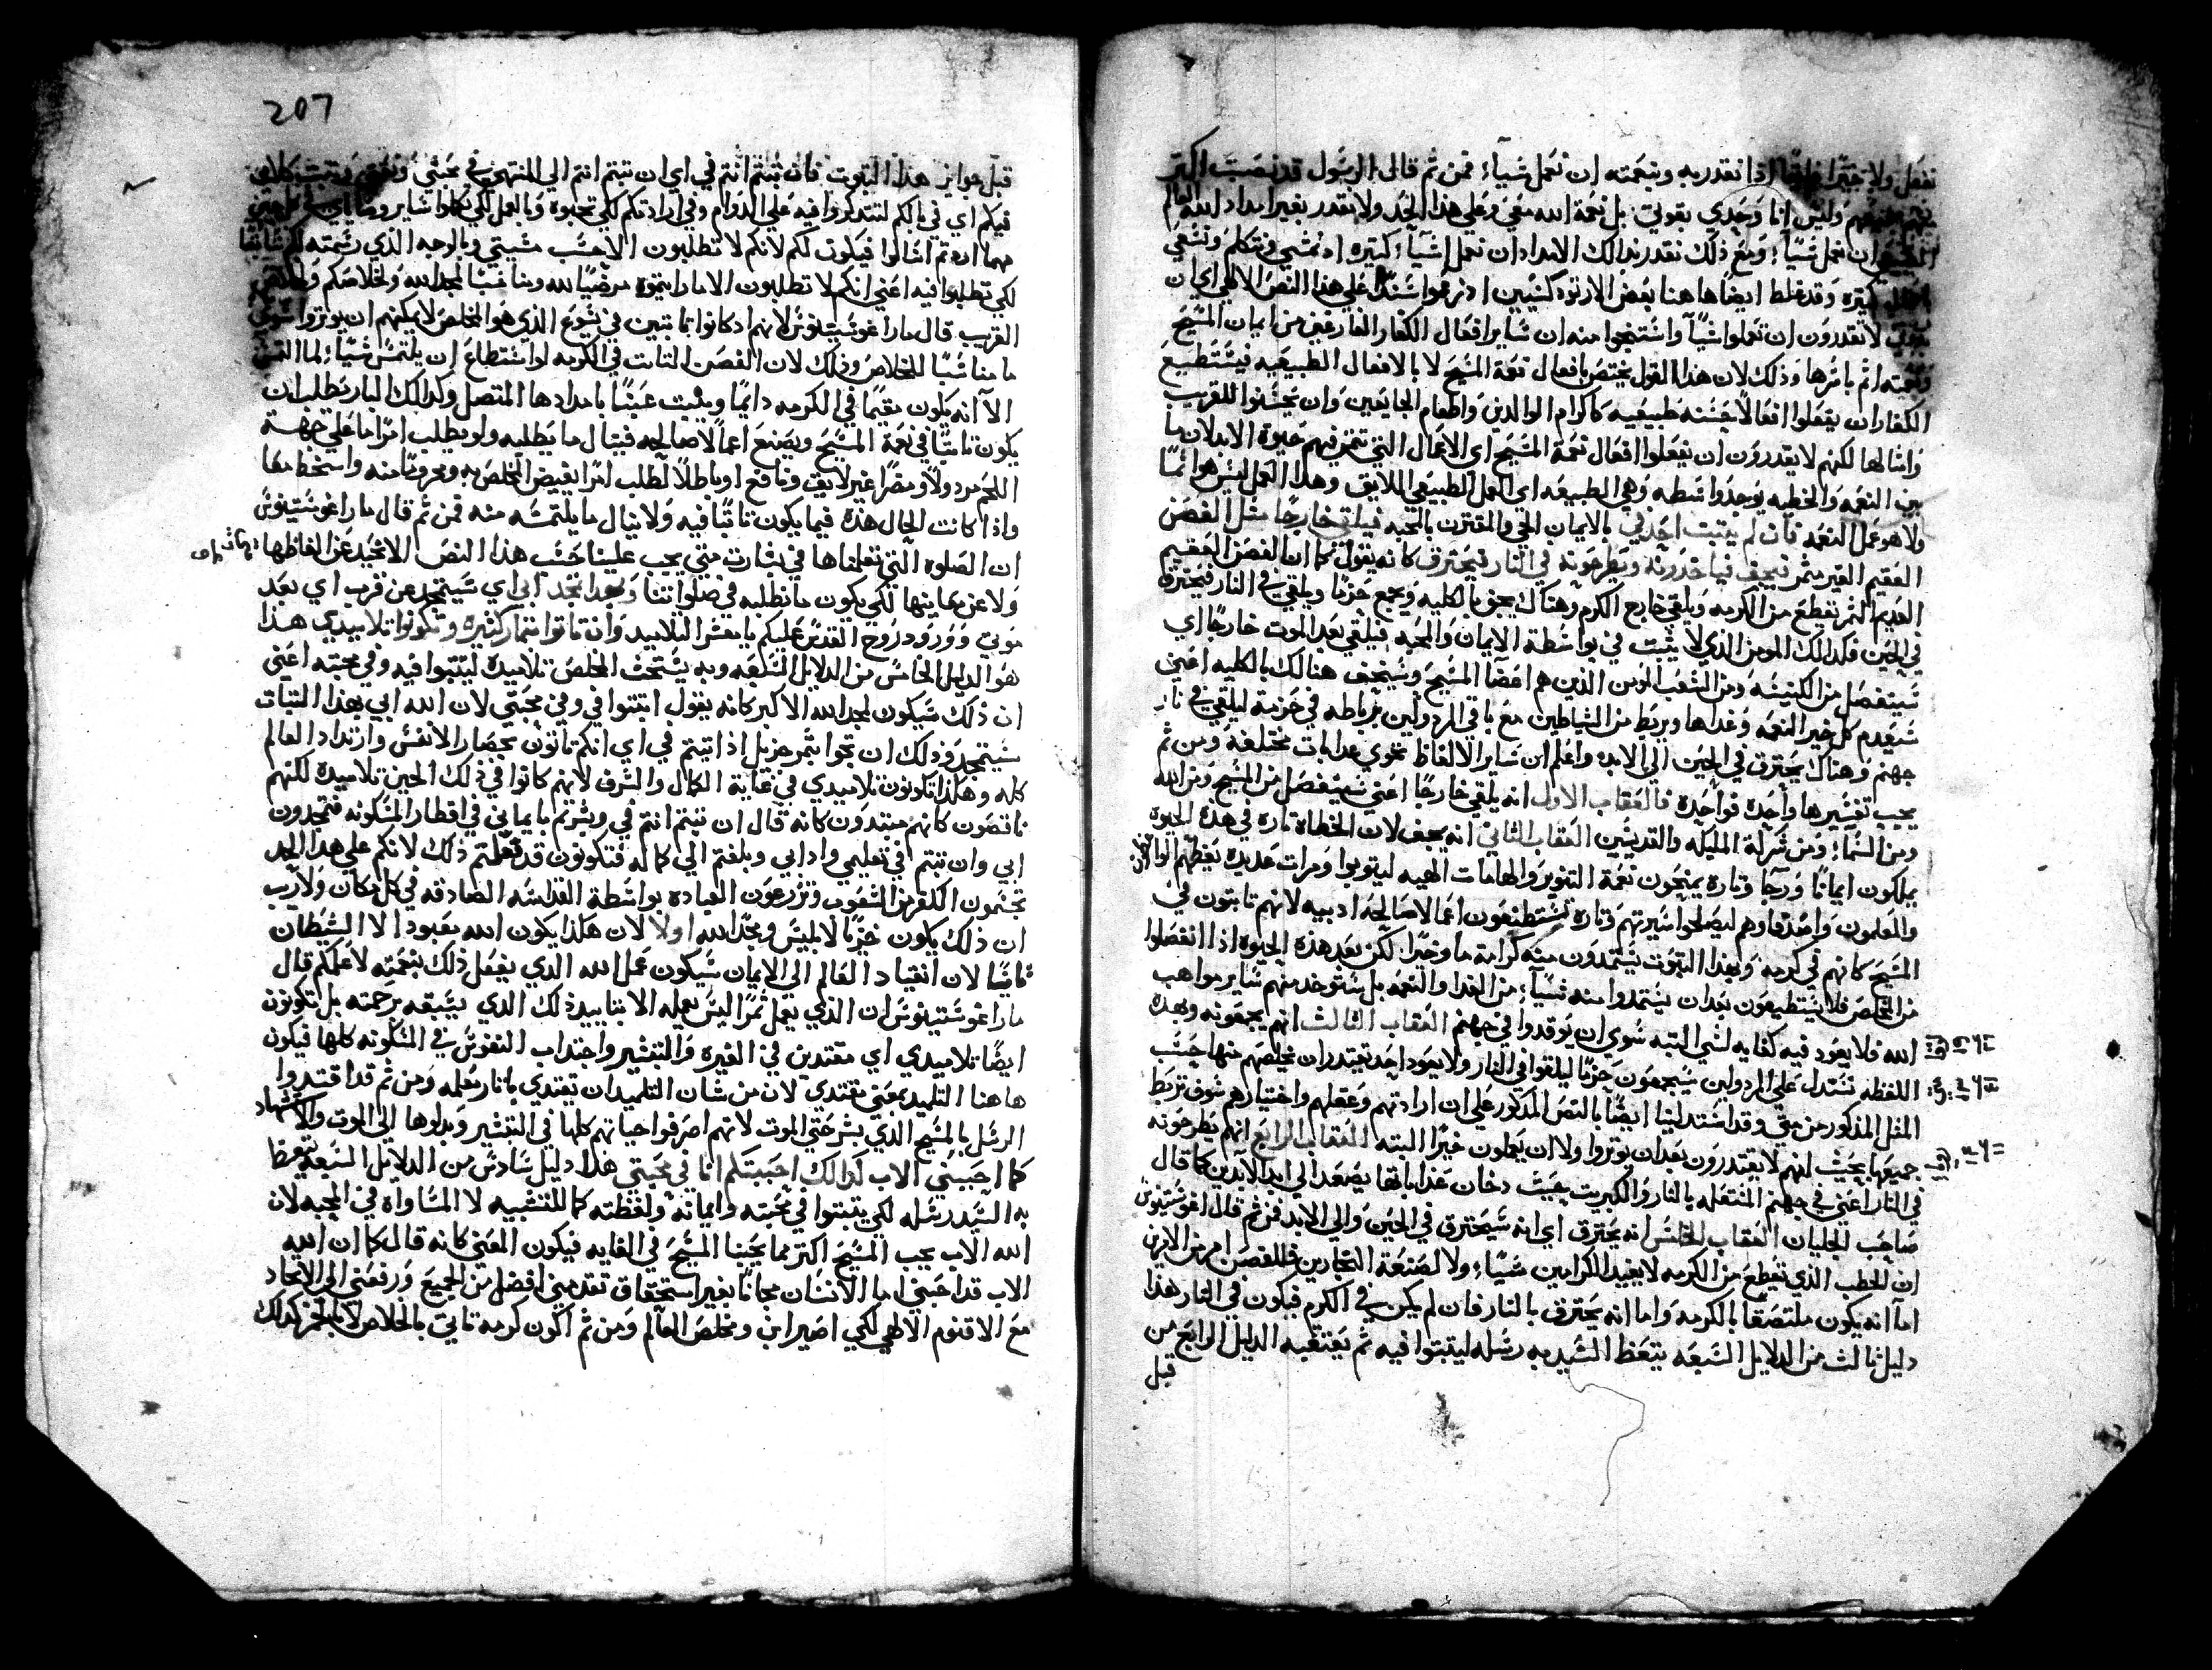 نفعل ولا خيرًا اذا نقدر به وبنعمته ان نعمل شياء فمن ثم قال الرسول قد نصبت اكثر
وليس انا وحدي بقولي بل نعمة الله معي وعلي هذا الحد ولا نقدر بغير امداد الله العام
ان نعمل شيًا ومع ذلك نقدر بذالك الامداد ان نعمل اشيآء كثيره اد نمشي ونتكلم ونشفي
كثيره وقد غلط ايضًا هاهنا بعض الارتودكسيين اد زعموا سندًا علي هذا النص الالهي اي ان
لا تقدرون ان تعملوا شيًا واستنتجوا منه ان ساير افعال الكفار الفارغين من ايمان المسيح
ونعمته اثم باسرها وذلك لان هذا القول يختص بافعال نعمة المسيح لا بالافعال الطبيعيه فيستطيع
الكفار ان يفعلوا افعالًا حسنه طبيعيه كاكرام الوالدين واطعام الجايعين وان يحسنوا للقريب
وامثالها لكنهم لا يقدرون ان يفعلوا افعال نعمة المسيح اي الاعمال التي تتمر فيهم حيوة الابد لان ما
بين النعمه والخطيه يوجد واسطه وهي الطبيعه اي العمل الطبيعي الملايق وهذا العمل ليس هو اثمًا
ولا هو عمل النعمه فان لم يتبت احد في بالايمان الحي والمقترن بالمحبه فيلقي خارجًا متل الغصن
العقيم الغير متمر فيجف فياخدونه ويطرحونه في النار فيحترق كانه يقول كما ان الغصن العقيم
العديم التمر يقطع من الكرمه ويلقي خارج الكرم وهناك يجف بالكليه ويجمع حزمًا ويلقي في النار فيحترق
في الحين فكدالك المومن الذي لا يتبت في بواسطة الايمان والمحبه فيلقي بعد الموت خارجًا اي
سيتفصل من الكنيسه ومن الشعب المومن الذين هم اعضا المسيح وسيجف هنالك بالكليه اعني
سيعدم كل خير النعمه وغداها ويربط من الشياطين مع باقي المردولين برباطه في حزمة ليلقي في نار
جهنم وهناك يحترق في الحين الي الابد واعلم ان ساير الالفاظ تحوي عدابات مختلفة ومن ثم
يجب تفسيرها واحدة فواحدة فالعقاب الاول انه يلقي خارجًا اعني سينفصل من المسيح ومن الله
ومن السماء ومن شركة المليكه والقديسين العقاب الثاني انه يجف لان الخطاة تاره في هذه الحيوه
يملكون ايمانًا ورجآ وتارة يمنحون نعمة التنوير والهامات الهيه ليتوبوا ومرات عديده تعظهم الوالدين
والمعلمون واصدقاوهم ليصلحوا سيرتهم وتاره يستطيعون اعمالا صالحه ادبيه لانهم تابتون في
المسيح كانهم في كرمه وبهذا التبوت يستمدون منه كرامة ما وخيرًا لكن بعد هذه الحيوه اذا انفصلوا
من المخلص فلا يستطيعون بعد ان يستمدوا منه شيآء من الغدا والنعمه بل ستوخد منهم ساير مواهب
الله فلا يعود فيه كفايه لشي البته سوي ان يوقدوا في جهنم العقاب الثالث انهم يجمعونه وبهذه
اللفظه تستدل علي المردولين سيجمعون حزمًا ليلقوا في النار ولا يعود احد يقتدر ان يخلصهم منها حسب
المثل المذكور من متي وقد استدلينا ايضًا بالنص المذكور علي ان ارادتهم وعقلهم واختيارهم سوف تربط
جميعها بحيث انهم لا يقتدرون بعد ان يوتروا ولا ان يعملون خيرًا البته العقاب الرابع انهم يطرحونه
في النار اعني في جهنم المشتعله بالنار والكبريت بحيث دخان عذاباتها يصعد الي ابد الابدين كما قال
صاحب الجليان العقاب الخامس انه يحترق اي انه سيحترق في الحين والي الابد فمن ثم قال اغوستينوس
ان الحطب الذي تقطع من الكرمه لا يفيد الكرامين شيًا ولا لصنعة النجارين فللغصن امر من الامرين
اما انه يكون ملتصقًا بالكرمه واما انه يحترق بالنار فان لم يكن في الكرم فيكون في النار هذا
دليل ثالث من الدلايل السبعه يتعظ السيد به رسله ليتبتوا فيه ثم يعتقبه الدليل الرابع من
قبل
207
قبل جوايز هذا التبوت فان تبتم انتم في اي ان تبتم انتم الي المنتهي في محبتي
فيكم اي في بالكم لتتدكروا فيه علي الدوام وفي ارادتكم لكي تحبوه وبالعمل لكي تكملوا ساير وصاياي
مهما اردتم اسالوا فيكون لكم لانكم لا تطلبون الا حسب مشيتي وبالوجه الذي رسمته لكم سابقا
لكي تطلبوا فيه اعني انكم لا تطلبون الا ما رايتموه مرضيًا لله ومناسبًا لمجد الله ولخلاصكم وخلاص
القريب قال مار اغوستينوس لانهم اد كانوا تابتين في يسوع الذي هو المخلص لا يمكنهم ان يوتروا سوي
ما مناسبًا للخلاص وذلك لان الغصن التابت في الكرمه لو استطاع ان يلتمس شيًا لما التمس
الا انه يكون مقيمًا في الكرمه دايمًا وينبت عنبًا بامدادها المتصل وكدالك البار يطلب ان
يكون تابتًا في نعمة المسيح ويصنع اعمالًا صالحه فينال ما يطلبه ولو يطلب امرًا ما علي جهة
اللحم مردولًا ومضرًا غير لايق ونافع او باطلًا لطلب امرًا يغيض المخلص به ومحرومًا منه واسخط معا
واذا كانت الحال هذه فيما يكون تابتًا فيه ولا ينال ما يلتمسه منه فمن ثم قال مار اغوستينوس
ان الصلوه التي تعلمناها في بشارت متي يجب علينا حسب هذا النص الا نحيد عن الفاظها
ولا عن معاينها لكي يكون ما نطلبه في صلواتنا وبهدا تمجد ابي اي سيتمجد عن قرب اي بعد
موتي وورود روح القدس عليكم يا معشر التلاميد وان تاتوا بتمار كثيره وتكونوا تلاميدي هذا
هو الدليل الخامس من الدلايل السبعه وبه يستحث المخلص تلاميده ليتبتوا فيه وفي محبته اعني
ان ذلك سيكون لمجد الله الاكبر كانه يقول اتبتوا في وفي محبتي لان الله ابي بهذا التبات
سيتمجد وذلك ان تجوا بتمر جزيل اذا تبتم في اي انكم تاتون بحصار الانفس وارتداد العالم
كله وهكذا تكونون تلاميدي في غاية الكمال والشرف لانهم كانوا في ذلك الحين تلاميده لكنهم
ناقصون كانهم مبتدون كانه قال ان تبتم انتم في وبشرتم بايماني في اقطار المسكونه فتمجدون
ابي وان تبتم في تعليمي وادابي وبلغتم الي كماله فتكونون قد تعلمتم ذلك لانكم علي هدا الحد
تحتمون الكفر من الشعوب وتزرعون العباده بواسطة القداسه الصادقه في كل مكان ولا ريب
ان ذلك يكون خزيًا لابليس ومجدًا لله اولًا لان هكذا يكون الله معبودا لا الشيطان
تانيًا لان انقياد العالم الي الايمان سيكون عمل الله الذي يفعل ذلك بنعمته لا عملكم قال
مار اغوستينوس ان الذي يعمل تمرًا ليس يعمله الا بتاييد ذلك الذي يسبقه برحمته بل تكونون
ايضًا تلاميدي اي مقتدين في الغيره والتبشير واجتداب النفوس في المسكونه كلها فيكون
هاهنا التلميد بمعني مقتدي لان من شان التلميد ان يقتدي باتار معلمه ومن ثم قد اقتدوا
الرسل بالمسيح الذي بشر حتي الموت لانهم اصرفوا حياتهم كلها في التبشير وبدلوها الي الموت والاستشهاد
كما احبني الاب كدالك احببتكم انا في محبتي هذا دليل سادس من الدلايل السبعه يتعظ
به السيد رسله لكي يتبتوا في محبته وايمانه ولفظته كما للتشبيه لا المساواه في المحبه لان
الله الاب يحب المسيح اكتر مما يحبنا المسيح في الغايه فيكون المعني كانه قال كما ان الله
الاب قد احبني انا الانسان مجانًا بغير استحقاق تقدمني افضل من الجميع ورفعني الي الاتحاد
مع الاقنوم الالهي لكي اصير ابن ومخلص العالم ومن ثم اكون كرمه تاتي بالخلاص لا بالخمر كدلك